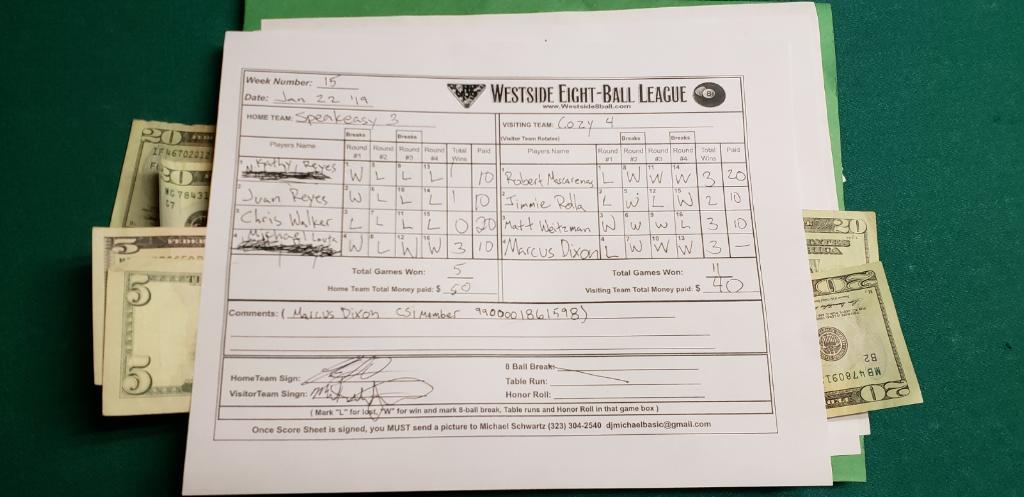 Week Number: 15
Date: Jan 22 '19
WESTSIDE EIGHT-BALL LEAGUE
www.Westside8ball.com
HOME TEAM: Speakeasy 3
VISITING TEAM: Cozy 4
(Visitor Team Rotates)
Breaks Breaks Breaks Breaks
Players Name Round #1 Round #2 Round #3 Round #4 Total Wins Paid
Players Name Round #1 Round #2 Round #3 Round #4 Total Wins Paid
Kathy Reyes W L L L 1 10
Robert L W W W 3 20
Juan Reyes W L L L 1 10
Jimmie L W L W 2 10
Chris Walker L L L L 0 20
Matt Weitzman W W W L 3 10
Michael W L W W 3 10
Marcus Dixon L W W W 3 -
Total Games Won: 5
Total Games Won: 11
Home Team Total Money paid: $ 50
Visiting Team Total Money paid: $ 40
Comments: (Marcus Dixon CSI Member 9900001861598)
HomeTeam Sign:
VisitorTeam Singn:
8 Ball Break:
Table Run:
Honor Roll:
( Mark "L" for lost, "W" for win and mark 8-ball break, Table runs and Honor Roll in that game box )
Once Score Sheet is signed, you MUST send a picture to Michael Schwartz (323) 304-2540 djmichaelbasic@gmail.com
20
20
5
5
5
20
20
B2